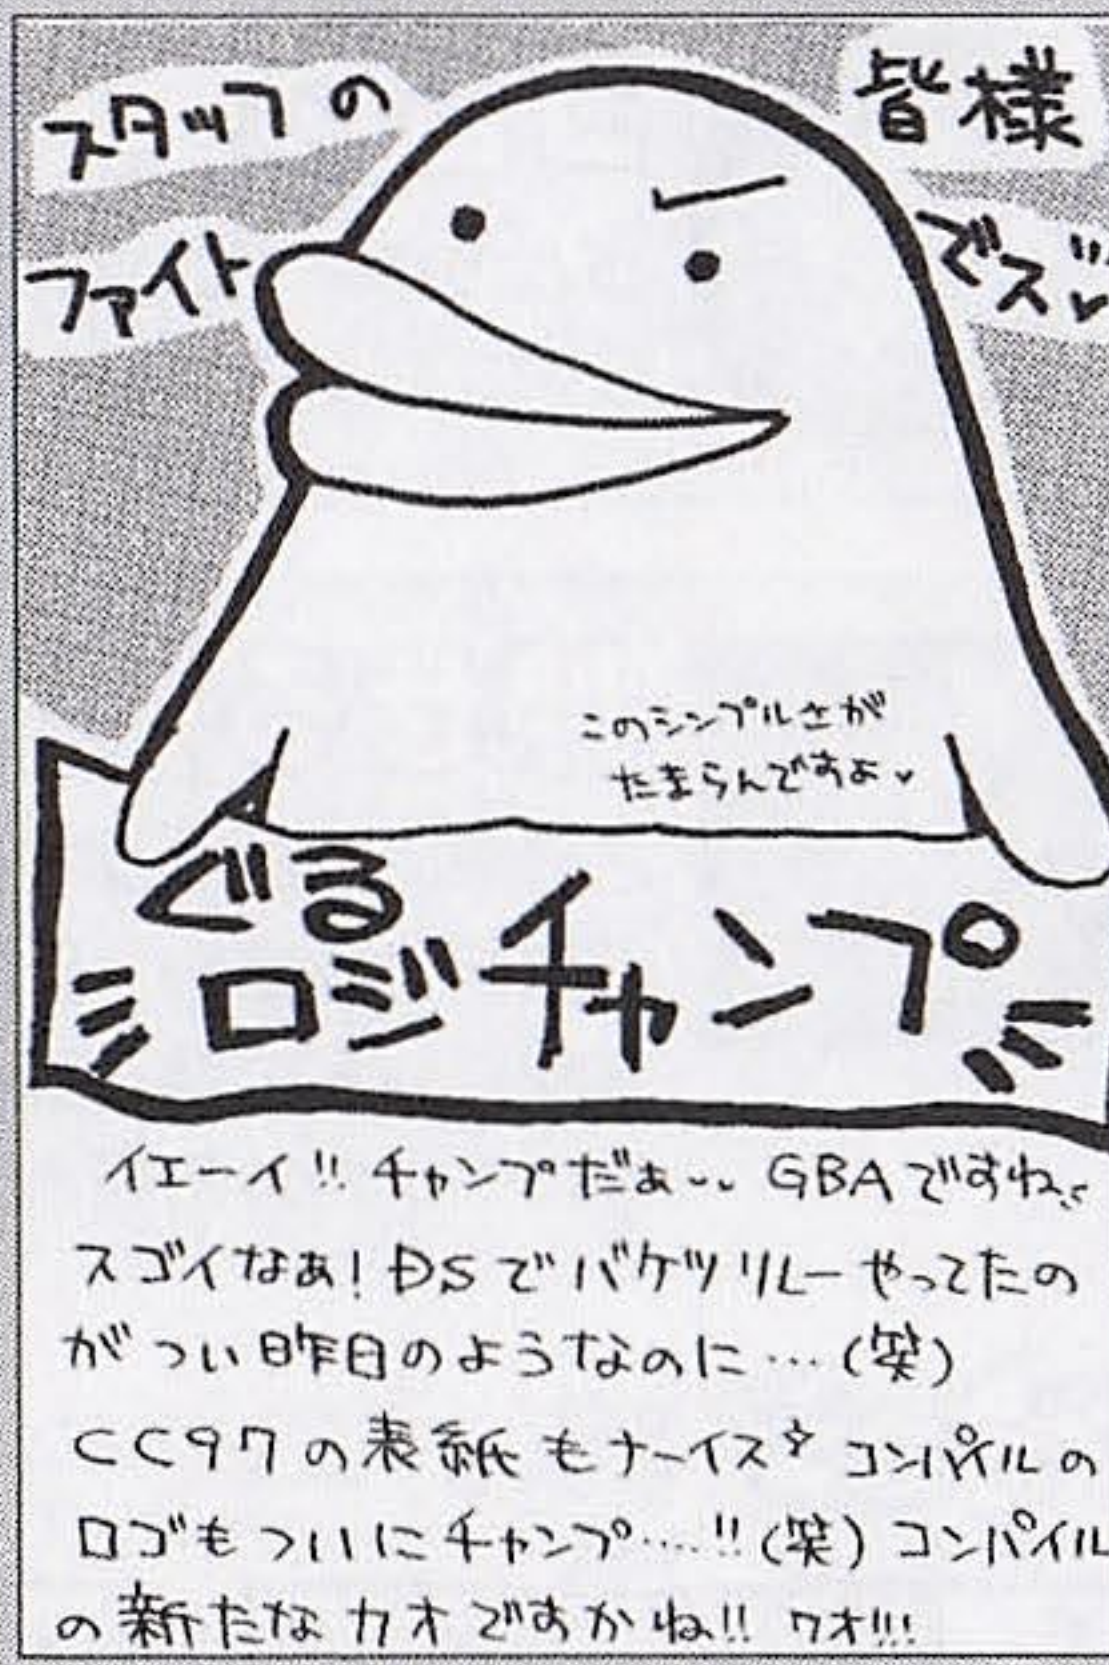 スタッフの
皆様
ファイト
でス"♥
このシンプルさが
たまらんですよ♥
ぐる
ロジチャンプ
イエーイ!!チャンプだぁ〜 GBAですね〜
スゴイなぁ!DSでバケツリレーやってたの
がつい昨日のようなのに…(笑)
CC97の表紙もナーイス☆コンパイルの
ロゴもついにチャンプ……!!(笑)コンパイル
の新たなカオですかね!!ワオ!!!